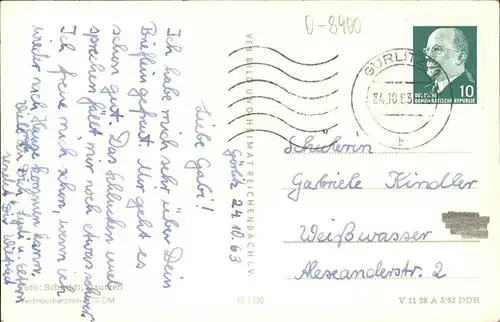 O-8900
GÖRLITZ
24.10.63
10
DEUTSCHE
DEMOKRATISCHE REPUBLIK
Görlitz 24.10.63
Liebe Gabi!
Ich habe mich sehr über Dein
Brieflein gefreut. Mir geht es
schon gut. Das Schlucken und
sprechen fällt mir noch etwas schwer.
Ich freue mich schon, wenn ich
wieder nach Hause kommen kann.
VEB BILD UND HEIMAT REICHENBACH I.V.
Schülerin
Gabriele Kindler
Weißwasser
Alexanderstr. 2
Foto: Schmidt, Bautzen
Verbraucherpreis DM
V 11 28 A 3/62 DDR